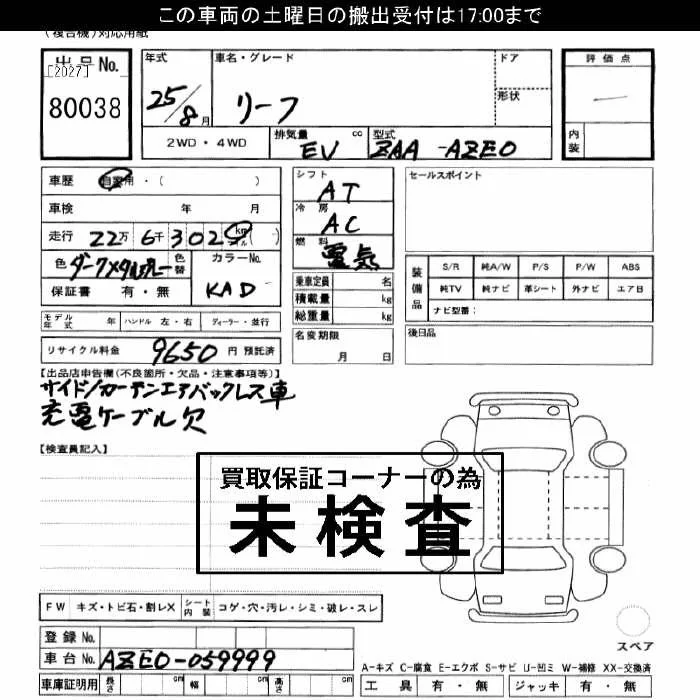 この車両の土曜日の搬出受付は17:00まで
(複合機)対応用紙
出品No.
[2027]
80038
年式
25/8月
車名・グレード
リーフ
ドア
形状
評価点
内装
2WD・4WD
排気量 cc
EV
型式
ZAA-AZE0
車歴 自家用・( )
車検 年 月
走行 22万 6千 302 km マイル ( )
色 ダークメタルグレー
色替
カラーNo.
KAD
保証書 有・無
シフト
AT
冷房
AC
燃料
電気
乗車定員 名
積載量 kg
総重量 kg
名変期限
月 日
セールスポイント
装備品
S/R 純A/W P/S P/W ABS
純TV 純ナビ 革シート 外ナビ エアB
ナビ型番:
後日品
モデル年式 年 ハンドル 左・右 ディーラー・並行
リサイクル料金 9650 円 預託済
【出品店申告欄(不良箇所・欠品・注意事項等)】
サイド/カーテンエアバックレス車
充電ケーブル欠
【検査員記入】
買取保証コーナーの為
未検査
FW キズ・トビ石・割レX シート内装 コゲ・穴・汚レ・シミ・破レ・スレ
登録No.
車台No. AZE0-059999
車庫証明用 長さ cm 幅 cm 高さ cm
スペア
A-キズ C-腐食 E-エクボ S-サビ U-凹ミ W-補修 XX-交換済
工具 有・無 ジャッキ 有・無